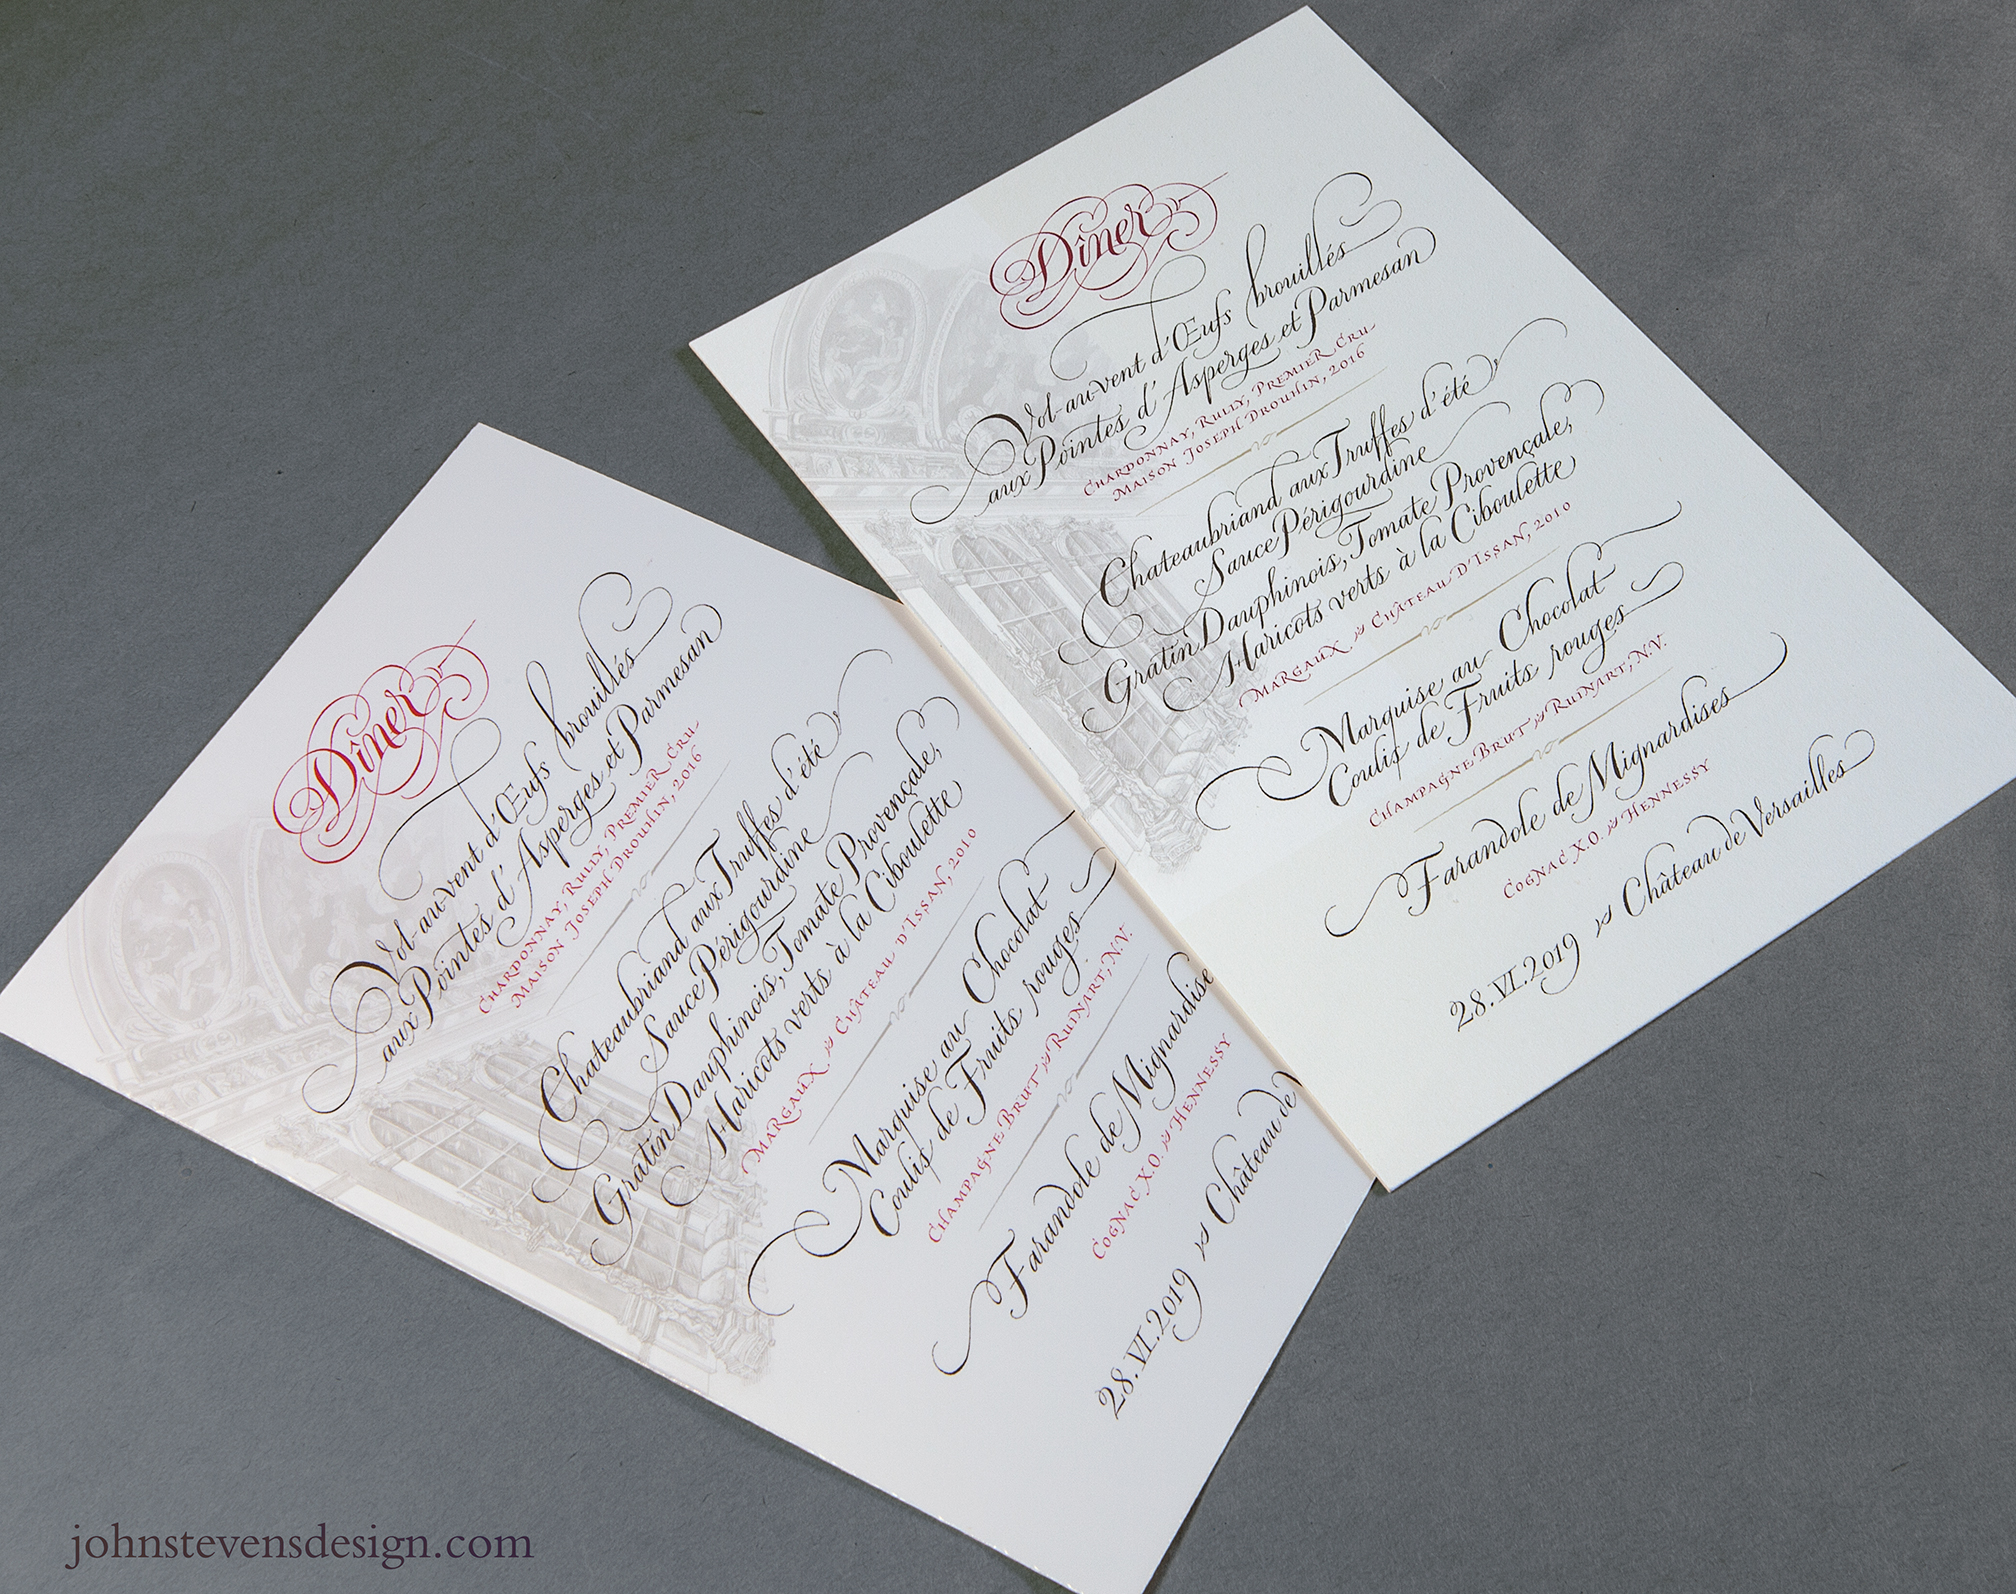 Dîner
Vol-au-vent d'Œufs brouillés
aux Pointes d'Asperges et Parmesan
Chardonnay, Rully, Premier Cru
Maison Joseph Drouhin, 2016
Chateaubriand aux Truffes d'été
Sauce Périgourdine
Gratin Dauphinois, Tomate Provençale,
Haricots verts à la Ciboulette
Margaux Château d'Issan, 2010
Marquise au Chocolat
Coulis de Fruits rouges
Champagne Brut Ruinart, N.V.
Farandole de Mignardise
Cognac X.O. Hennessy
28.VI.2019 Château de
Dîner
Vol-au-vent d'Œufs brouillés
aux Pointes d'Asperges et Parmesan
Chardonnay, Rully, Premier Cru
Maison Joseph Drouhin, 2016
Chateaubriand aux Truffes d'été
Sauce Périgourdine
Gratin Dauphinois, Tomate Provençale,
Haricots verts à la Ciboulette
Margaux Château d'Issan, 2010
Marquise au Chocolat
Coulis de Fruits rouges
Champagne Brut Ruinart, N.V.
Farandole de Mignardises
Cognac X.O. Hennessy
28.VI.2019 Château de Versailles
johnstevensdesign.com